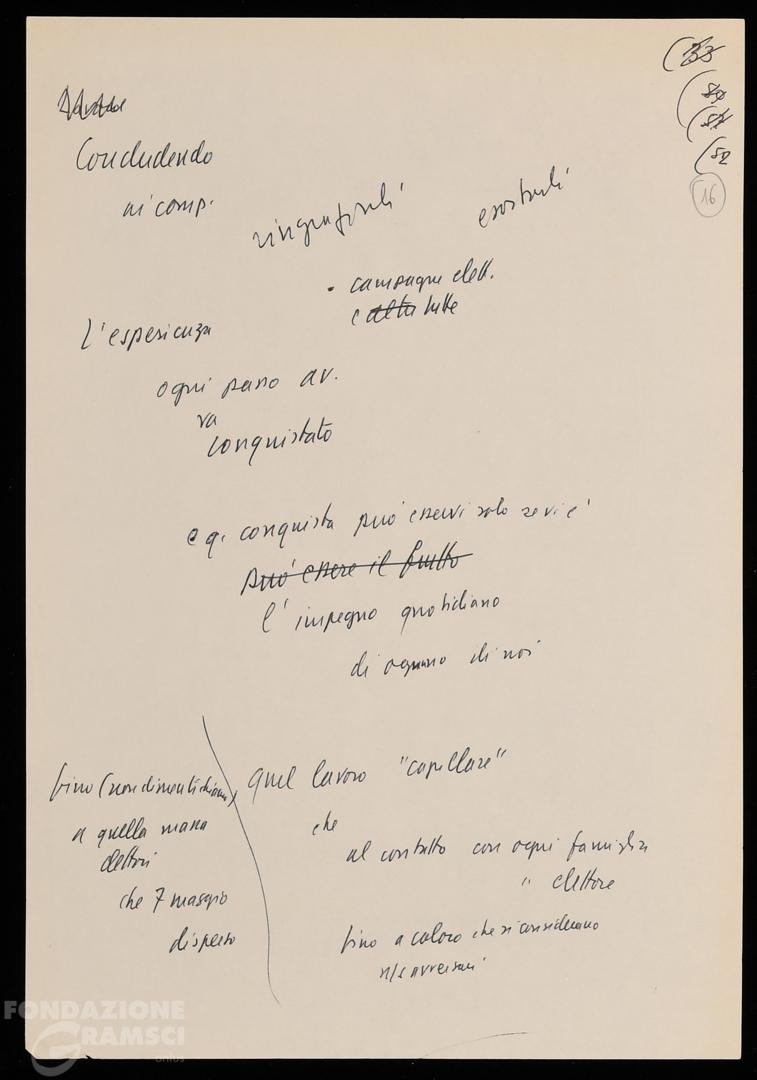 (33
(50
(51
(52
16
Concludendo
ai comp.
ringraziarli esortarli
- campagne elett.
e altre tutte
L'esperienza
ogni passo av.
va
conquistato
e q. conquista può esservi solo se vi è
può essere il frutto
l'impegno quotidiano
di ognuno di noi
quel lavoro "capillare"
che
al contatto con ogni famiglia
" elettore
fino a coloro che si considerano
n/s avversari
fino (non dimentichiamo)
a quella massa
elettori
che 7 maggio
disperso
FONDAZIONE
GRAMSCI
onlus